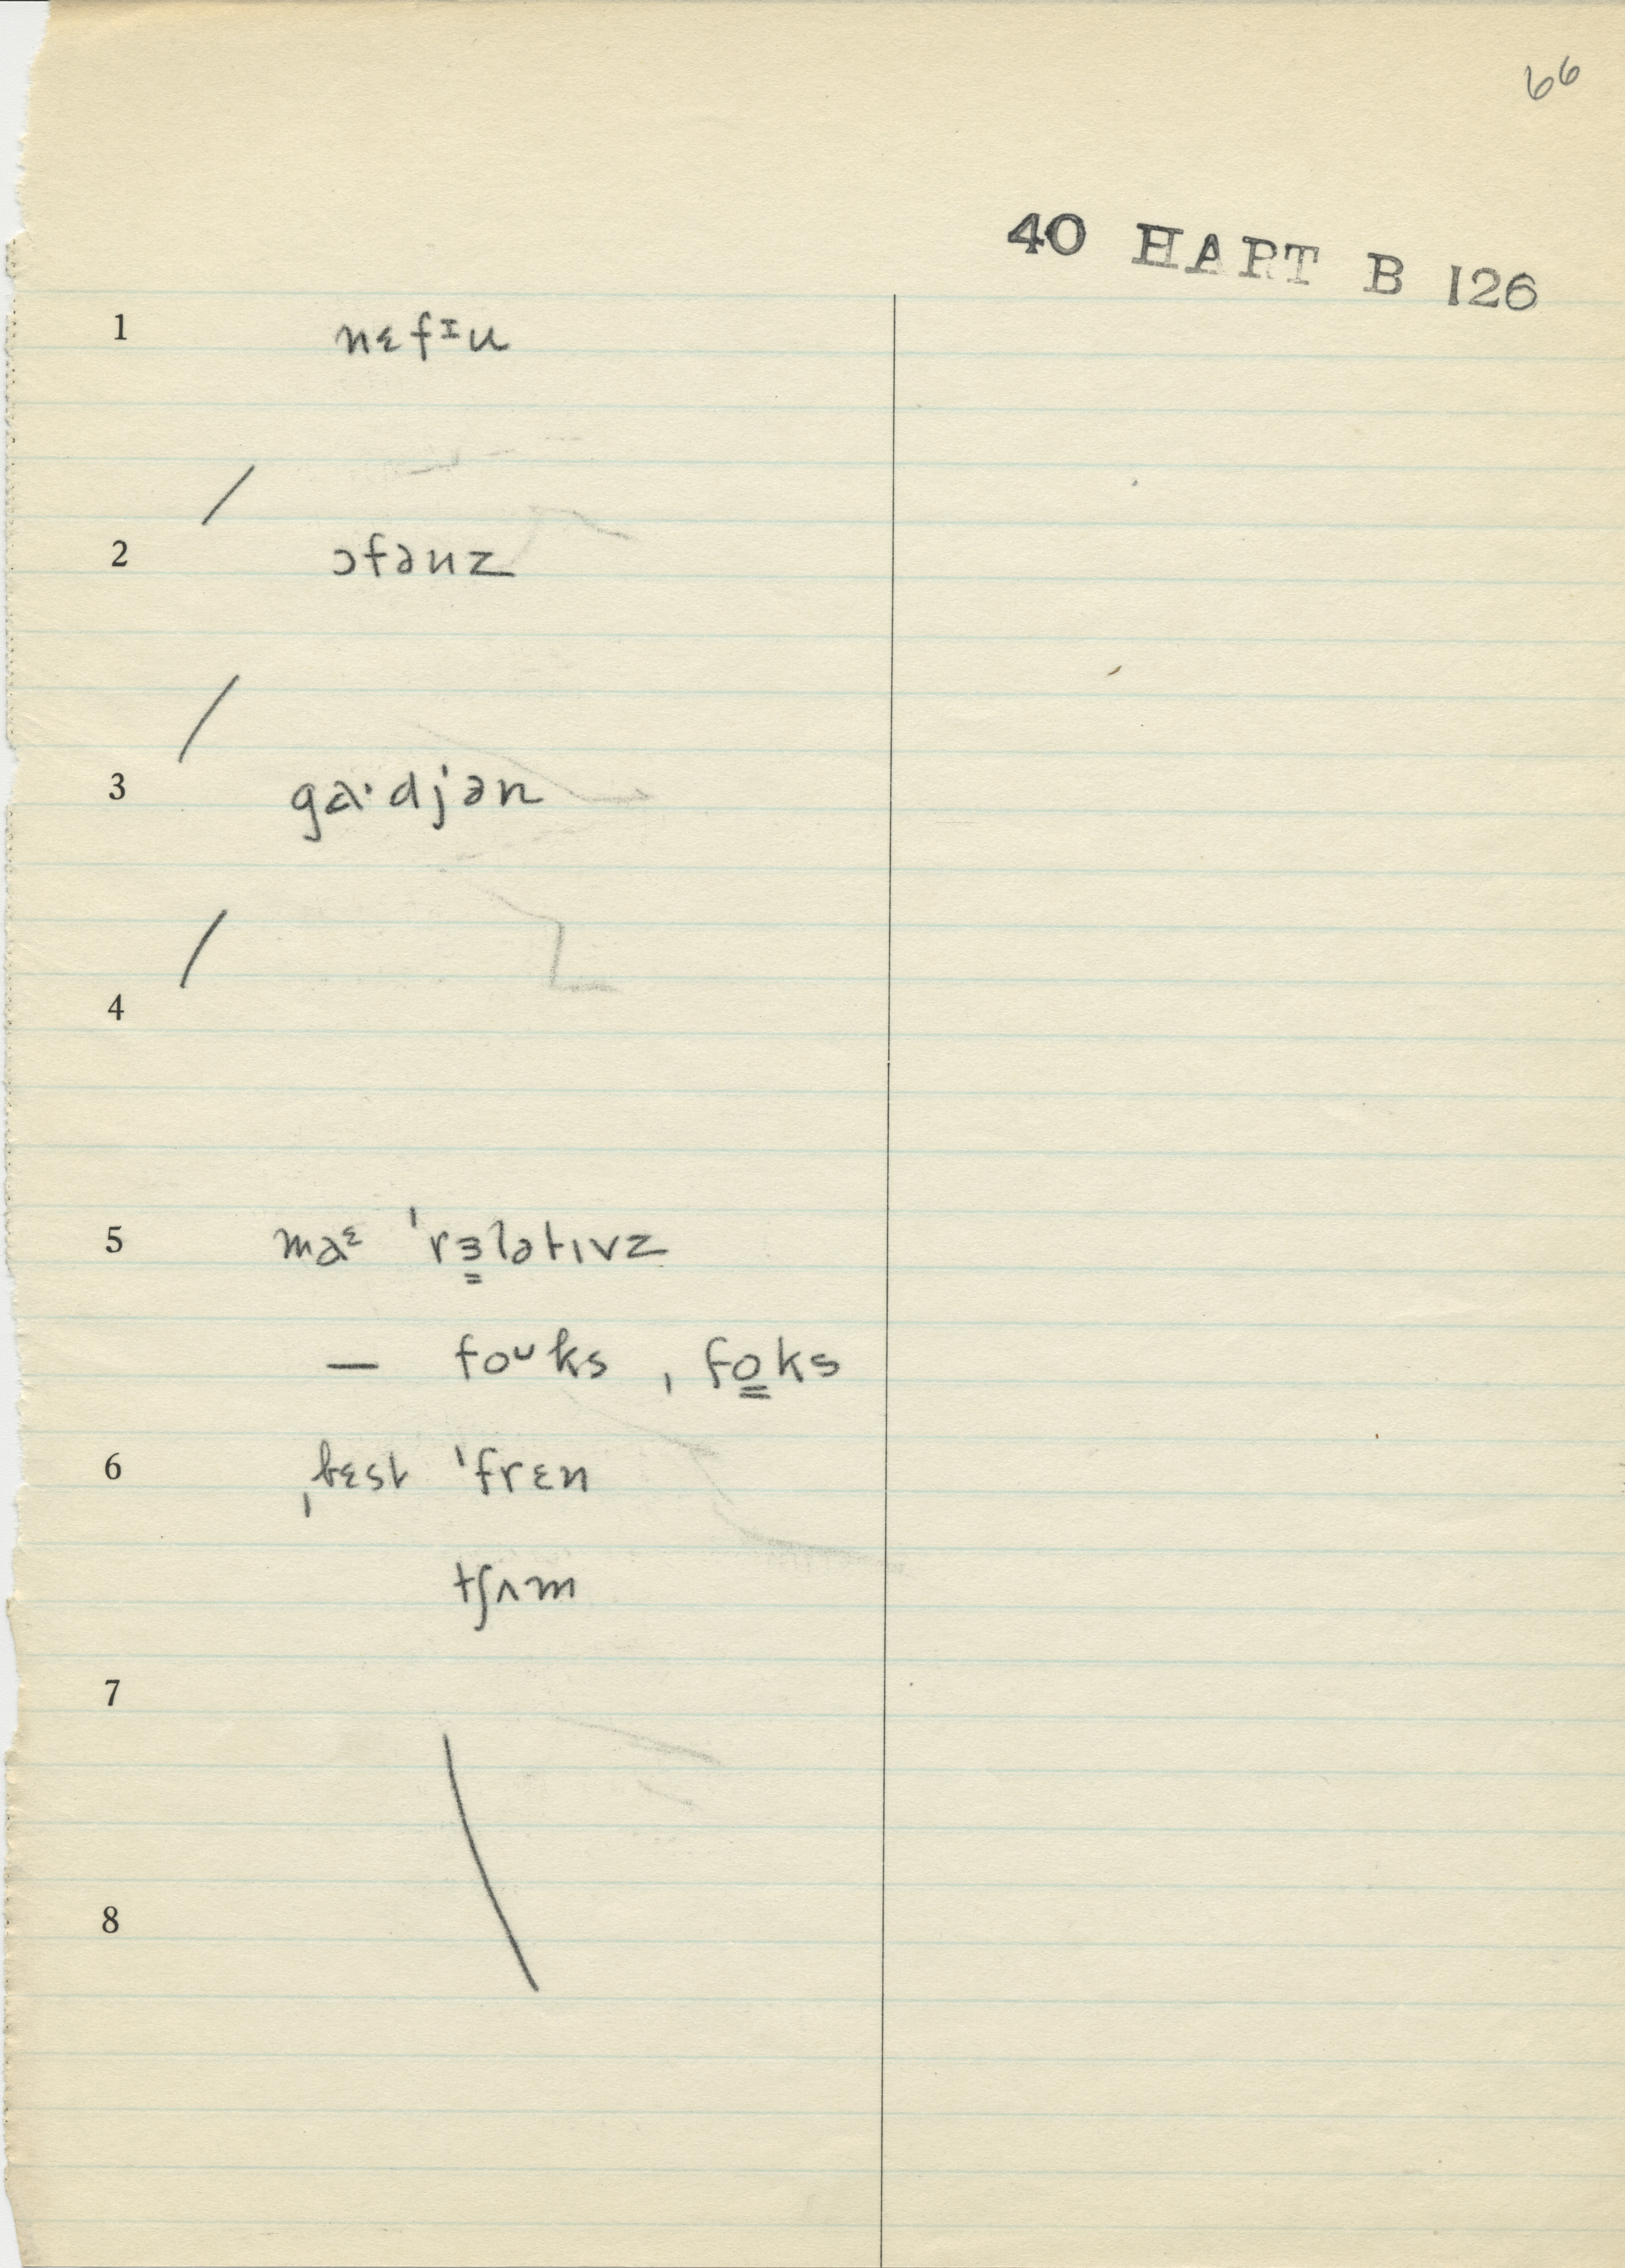 66
40 HART B 126
1 nɛfᶦu
2 ɔfənz
3 ga·djən
4
5 maᵋ ˈrɜ̳lətɪvz
— foᵘks , fo̳ks
6 ˌbɛst ˈfrɛn
tʃʌm
7
8